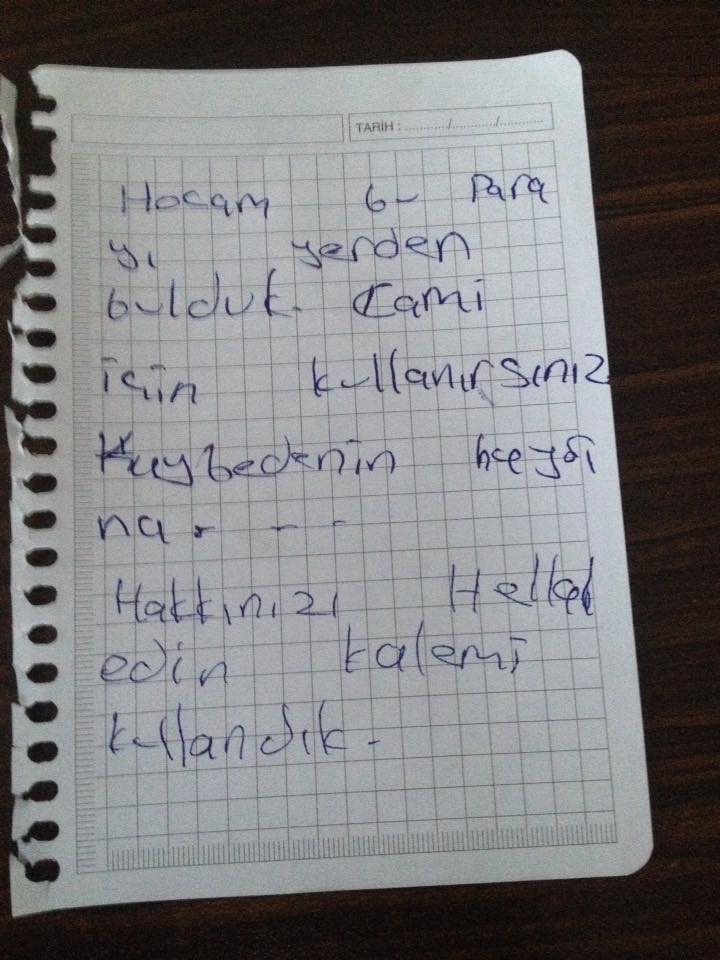 TARİH : ............/............/............
Hocam bu para
yı yerden
bulduk. Cami
için kullanırsınız
Kaybedenin hayri
na - - -
Hakkınızı Hellal
edin kalemi
kullandık.